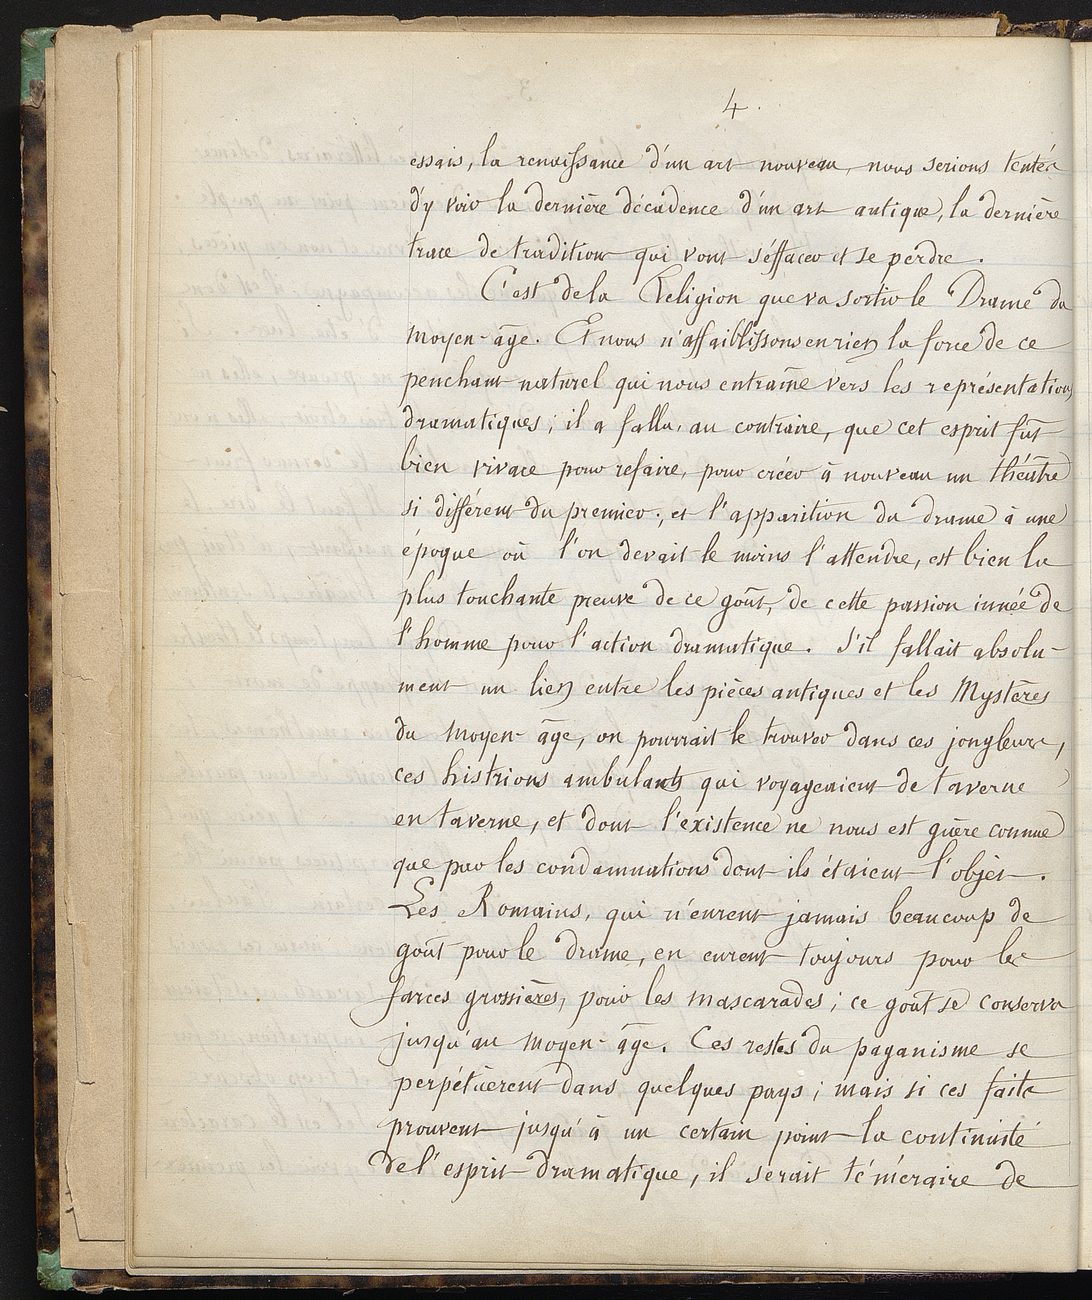 4.
essais, la renaissance d'un art nouveau, nous serions tentés
d'y voir la dernière décadence d'un art antique, la dernière
trace de tradition qui vont s'effacer et se perdre.
C'est de la Religion que va sortir le Drame du
moyen-âge. Et nous n'affaiblissons en rien la force de ce
penchant naturel qui nous entraîne vers les représentations
dramatiques; il a fallu, au contraire, que cet esprit fût
bien vivace pour refaire, pour créer à nouveau un théâtre
si différent du premier; et l'apparition du drame à une
époque où l'on devait le moins l'attendre, est bien la
plus touchante preuve de ce goût, de cette passion innée de
l'homme pour l'action dramatique. S'il fallait absolu-
ment un lien entre les pièces antiques et les Mystères
du moyen-âge, on pourrait le trouver dans ces jongleurs,
ces histrions ambulants qui voyageaient de taverne
en taverne, et dont l'existence ne nous est guère connue
que par les condamnations dont ils étaient l'objèt.
Les Romains, qui n'eurent jamais beaucoup de
goût pour le drame, en eurent toujours pour les
farces grossières, pour les mascarades; ce goût se conserva
jusqu'au moyen-âge. Ces restes du paganisme se
perpétuèrent dans quelques pays; mais si ces faits
prouvent jusqu'à un certain point la continuité
de l'esprit dramatique, il serait téméraire de